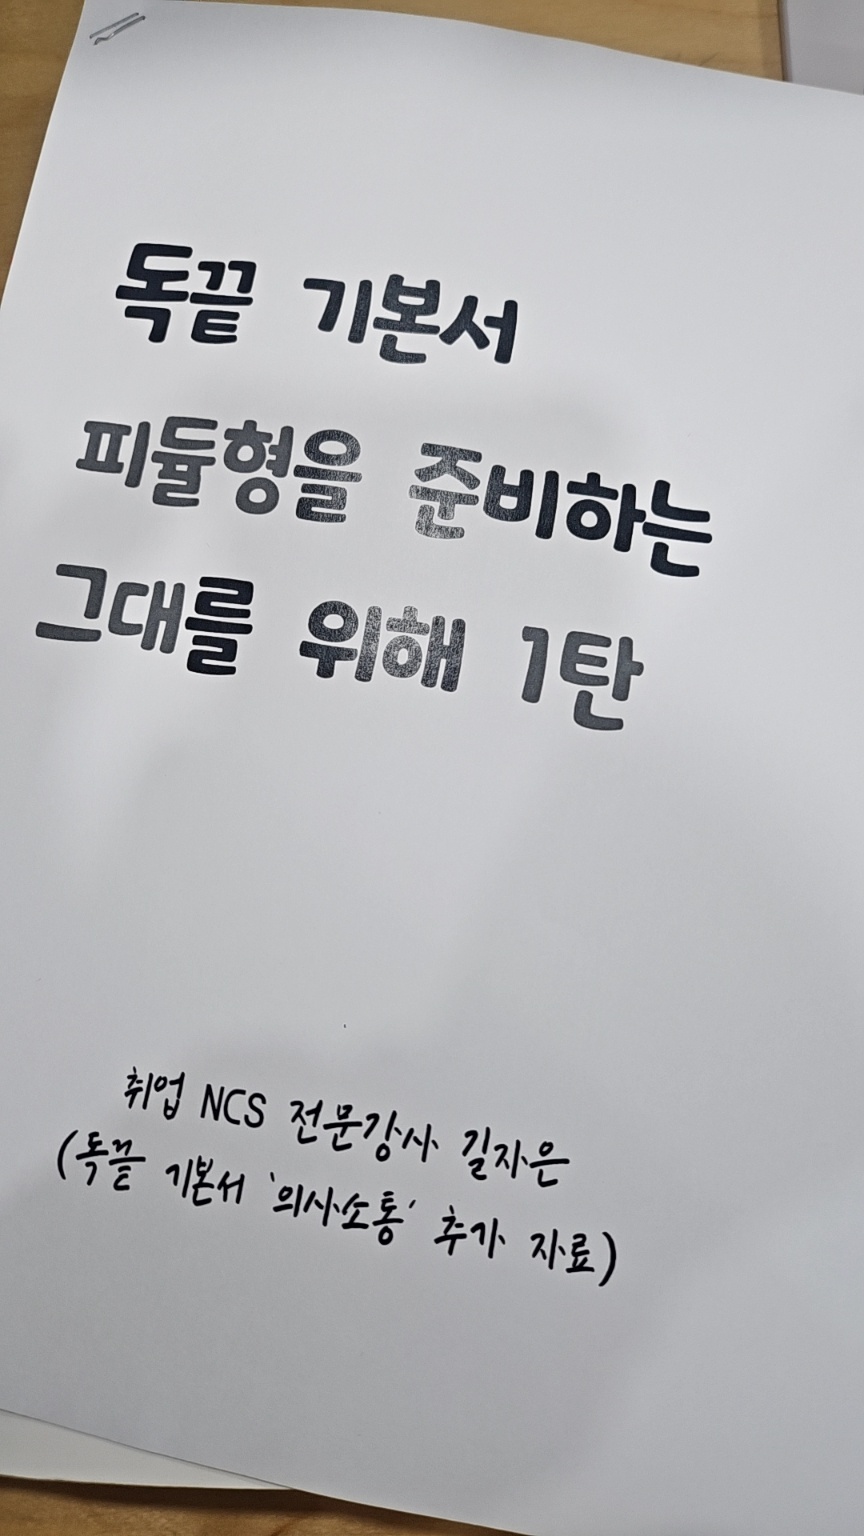 독끝 기본서
피듈형을 준비하는
그대를 위해 1탄
취업 NCS 전문강사 길자은
(독끝 기본서 '의사소통' 추가 자료)